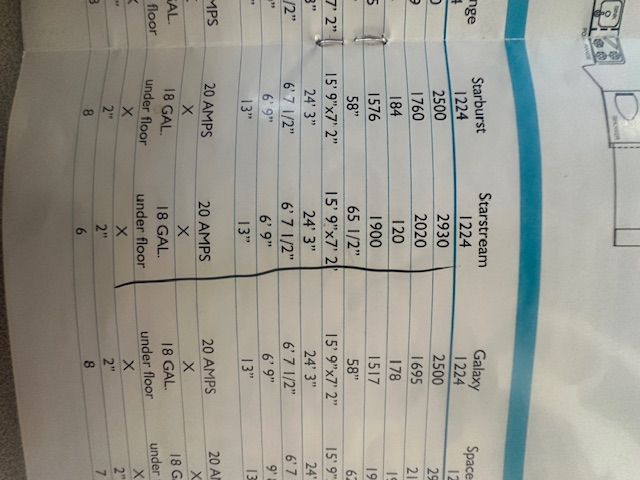 nge Starburst Starstream Galaxy Space
4 1224 1224 1224 12
0 2500 2930 2500 29
9 1760 2020 1695 21
184 120 178 19
5 1576 1900 1517 19
58" 65 1/2" 58" 62
7' 2" 15' 9"x7' 2" 15' 9"x7' 2" 15' 9"x7' 2" 15' 9"
3" 24' 3" 24' 3" 24' 3" 24'
/2" 6' 7 1/2" 6' 7 1/2" 6' 7 1/2" 6' 7
6' 9" 6' 9" 6' 9"
13" 13" 13" 13
MPS 20 AMPS 20 AMPS 20 AMPS 20 A
X X X X
AL. 18 GAL. 18 GAL. 18 GAL. 18 G
floor under floor under floor under floor under
X X X X
2" 2" 2" 2"
8 6 8 7